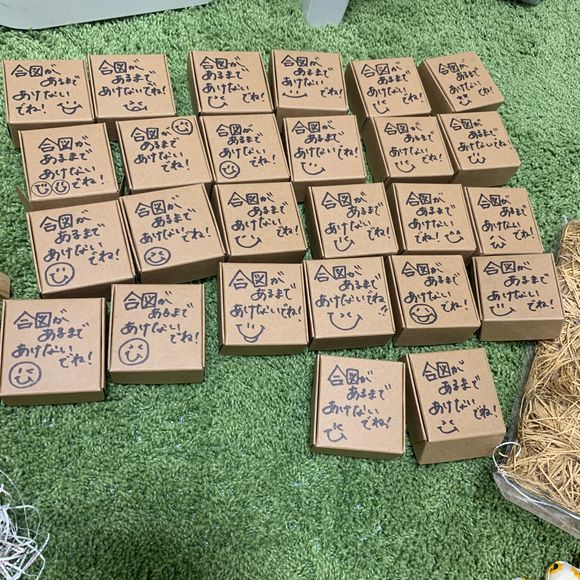 合図が
あるまで
あけないでね！
合図が
あるまで
あけないでね！
合図が
あるまで
あけないでね！
合図が
あるまで
あけないでね！
合図が
あるまで
あけないでね！
合図が
あるまで
あけないでね！
合図が
あるまで
あけない
でね！
合図が
あるまで
あけない
でね！
合図が
あるまで
あけない
でね！
合図が
あるまで
あけない
でね！
合図が
あるまで
あけない
でね！
合図が
あるまで
あけない
でね！
合図が
あるまで
あけない
でね！
合図が
あるまで
あけない
でね！
合図が
あるまで
あけない
でね！
合図が
あるまで
あけない
でね！
合図が
あるまで
あけない
でね！
合図が
あるまで
あけない
でね！
合図が
あるまで
あけない
でね！
合図が
あるまで
あけない
でね！
合図が
あるまで
あけないでね！
合図が
あるまで
あけないでね!!
合図が
あるまで
あけない
でね！
合図が
あるまで
あけない
でね！
合図が
あるまで
あけない
でね！
合図が
あるまで
あけない
でね！